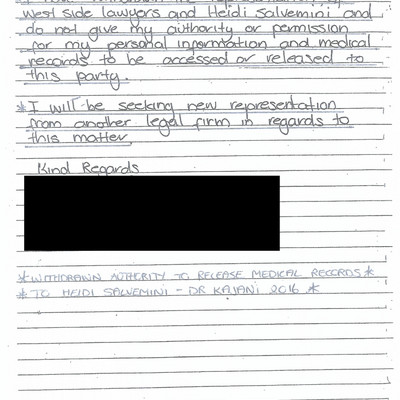 west side lawyers and Heidi Salvemini and
do not give my authority or permission
for my personal information and medical
records to be accessed or released to
this party.
*I will be seeking new representation
from another legal firm in regards to
this matter.
Kind Regards
*WITHDRAWN AUTHORITY TO RELEASE MEDICAL RECORDS*
*TO HEIDI SALVEMINI - DR KAIANI 2016 *